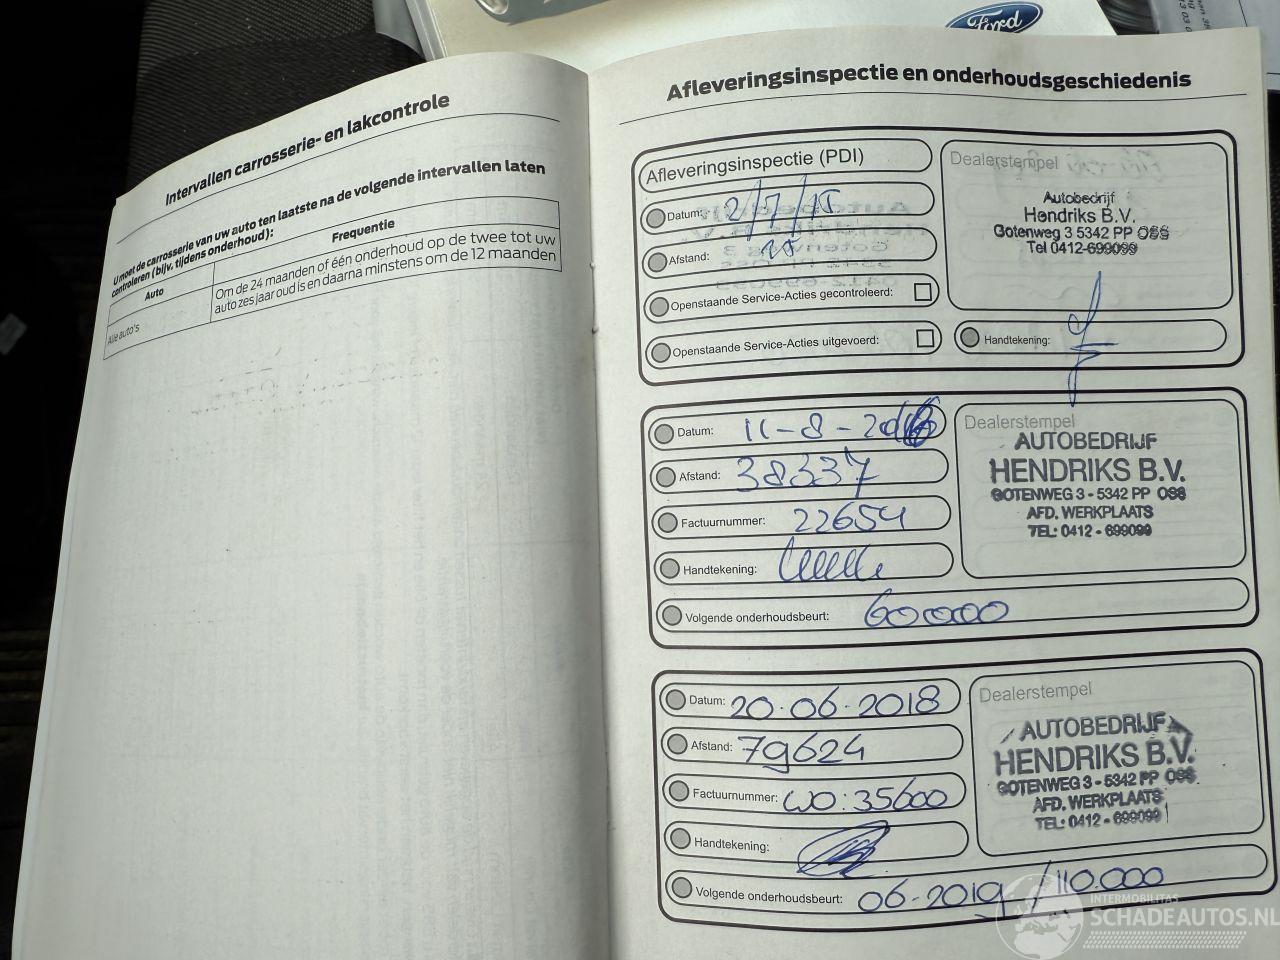 Ford
Intervallen carrosserie- en lakcontrole
U moet de carrosserie van uw auto ten laatste na de volgende intervallen laten
controleren (bijv. tijdens onderhoud):
Auto
Frequentie
Alle auto's
Om de 24 maanden of één onderhoud op de twee tot uw
auto zes jaar oud is en daarna minstens om de 12 maanden
Afleveringsinspectie en onderhoudsgeschiedenis
Afleveringsinspectie (PDI)
Datum: 2/7/15
Afstand: 25
Openstaande Service-Acties gecontroleerd:
Openstaande Service-Acties uitgevoerd:
Dealerstempel
Autobedrijf
Hendriks B.V.
Gotenweg 3 5342 PP OSS
Tel 0412-699099
Handtekening:
Datum: 11-8-2016
Afstand: 38337
Factuurnummer: 22654
Handtekening:
Volgende onderhoudsbeurt: 60000
Dealerstempel
AUTOBEDRIJF
HENDRIKS B.V.
GOTENWEG 3 - 5342 PP OSS
AFD. WERKPLAATS
TEL: 0412 - 699099
Datum: 20-06-2018
Afstand: 79624
Factuurnummer: WO:35600
Handtekening:
Volgende onderhoudsbeurt: 06-2019 / 110.000
Dealerstempel
AUTOBEDRIJF
HENDRIKS B.V.
GOTENWEG 3 - 5342 PP OSS
AFD. WERKPLAATS
TEL: 0412 - 699099
INTERMOBILITAS
SCHADEAUTOS.NL